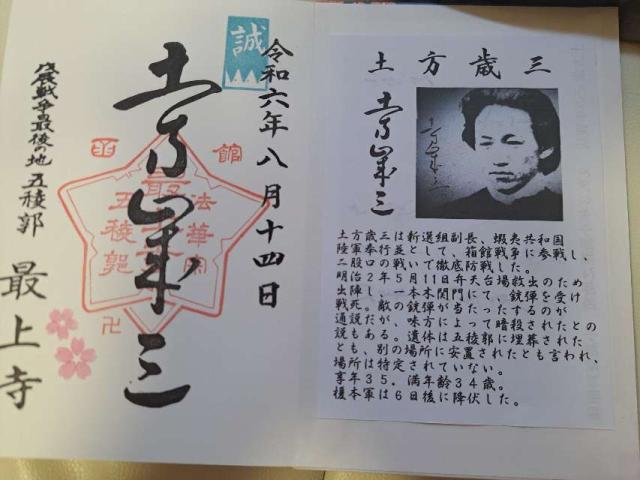 誠
令和六年八月十四日
土方歳三
戊辰戦争最後の地 五稜郭
最上寺
函館
法華宗
五稜郭
卍
土方歳三
土方歳三
土方歳三は新選組副長、蝦夷共和国
陸軍奉行並として、箱館戦争に参戦し、
二股口の戦いで徹底防戦した。
明治2年5月11日弁天台場救出のため
出陣し、一本木関門にて、銃弾を受け
戦死。敵の銃弾が当たったするのが
通説だが、味方によって暗殺されたとの
説もある。遺体は五稜郭に埋葬された
とも、別の場所に安置されたとも言われ、
場所は特定されていない。
享年35．満年齢34歳。
榎本軍は6日後に降伏した。